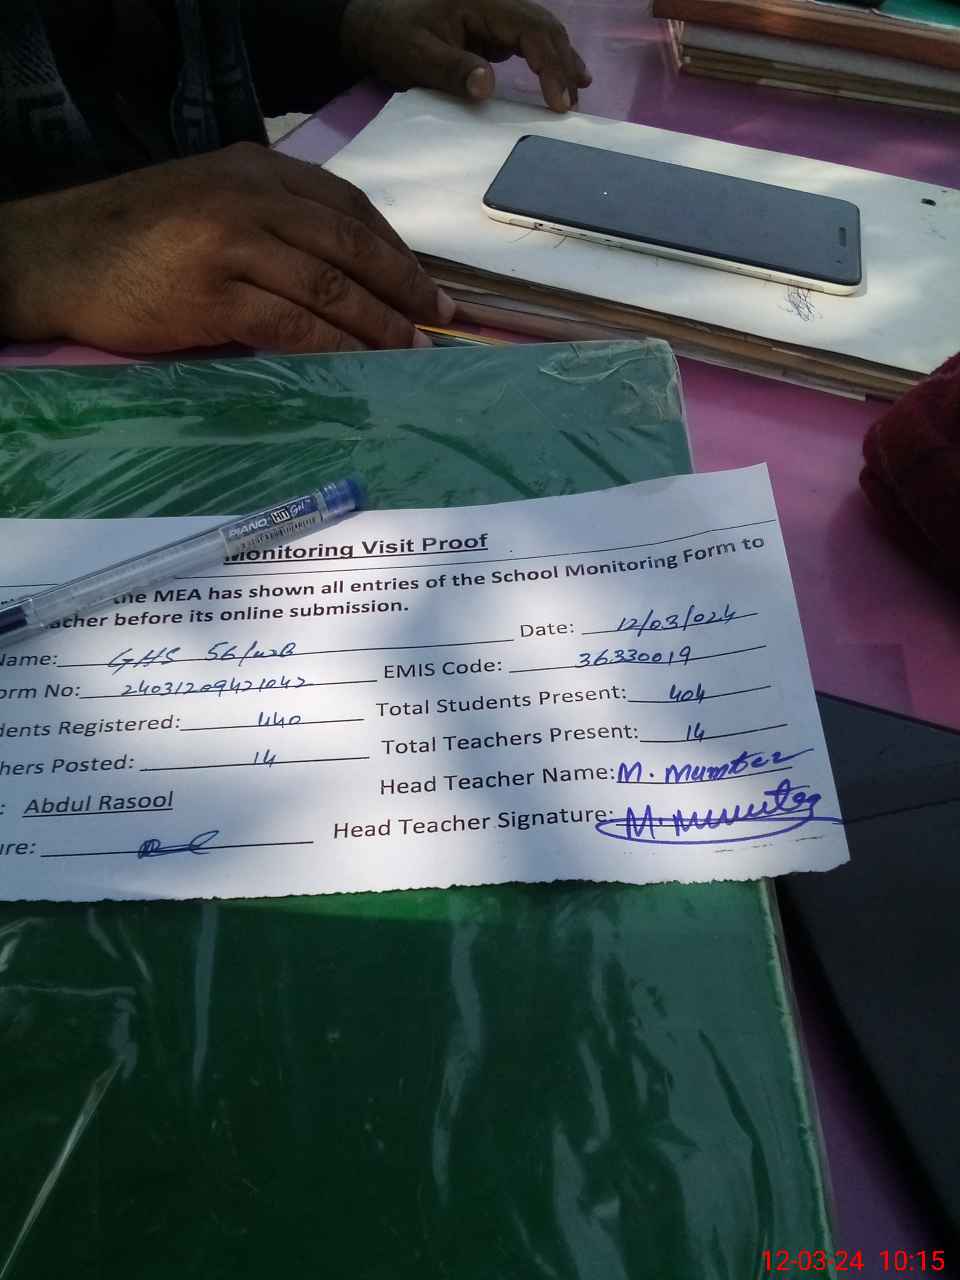 PIANO HIT Gel
Monitoring Visit Proof
the MEA has shown all entries of the School Monitoring Form to
acher before its online submission.
Date: 12/03/024
Name: GHS 56/WB
EMIS Code: 36330019
orm No: 24031209421042
dents Registered: 440
Total Students Present: 404
hers Posted: 14
Total Teachers Present: 14
: Abdul Rasool
Head Teacher Name: M. Mumtaz
ure:
Head Teacher Signature: M. Mumtaz
12-03-24 10:15